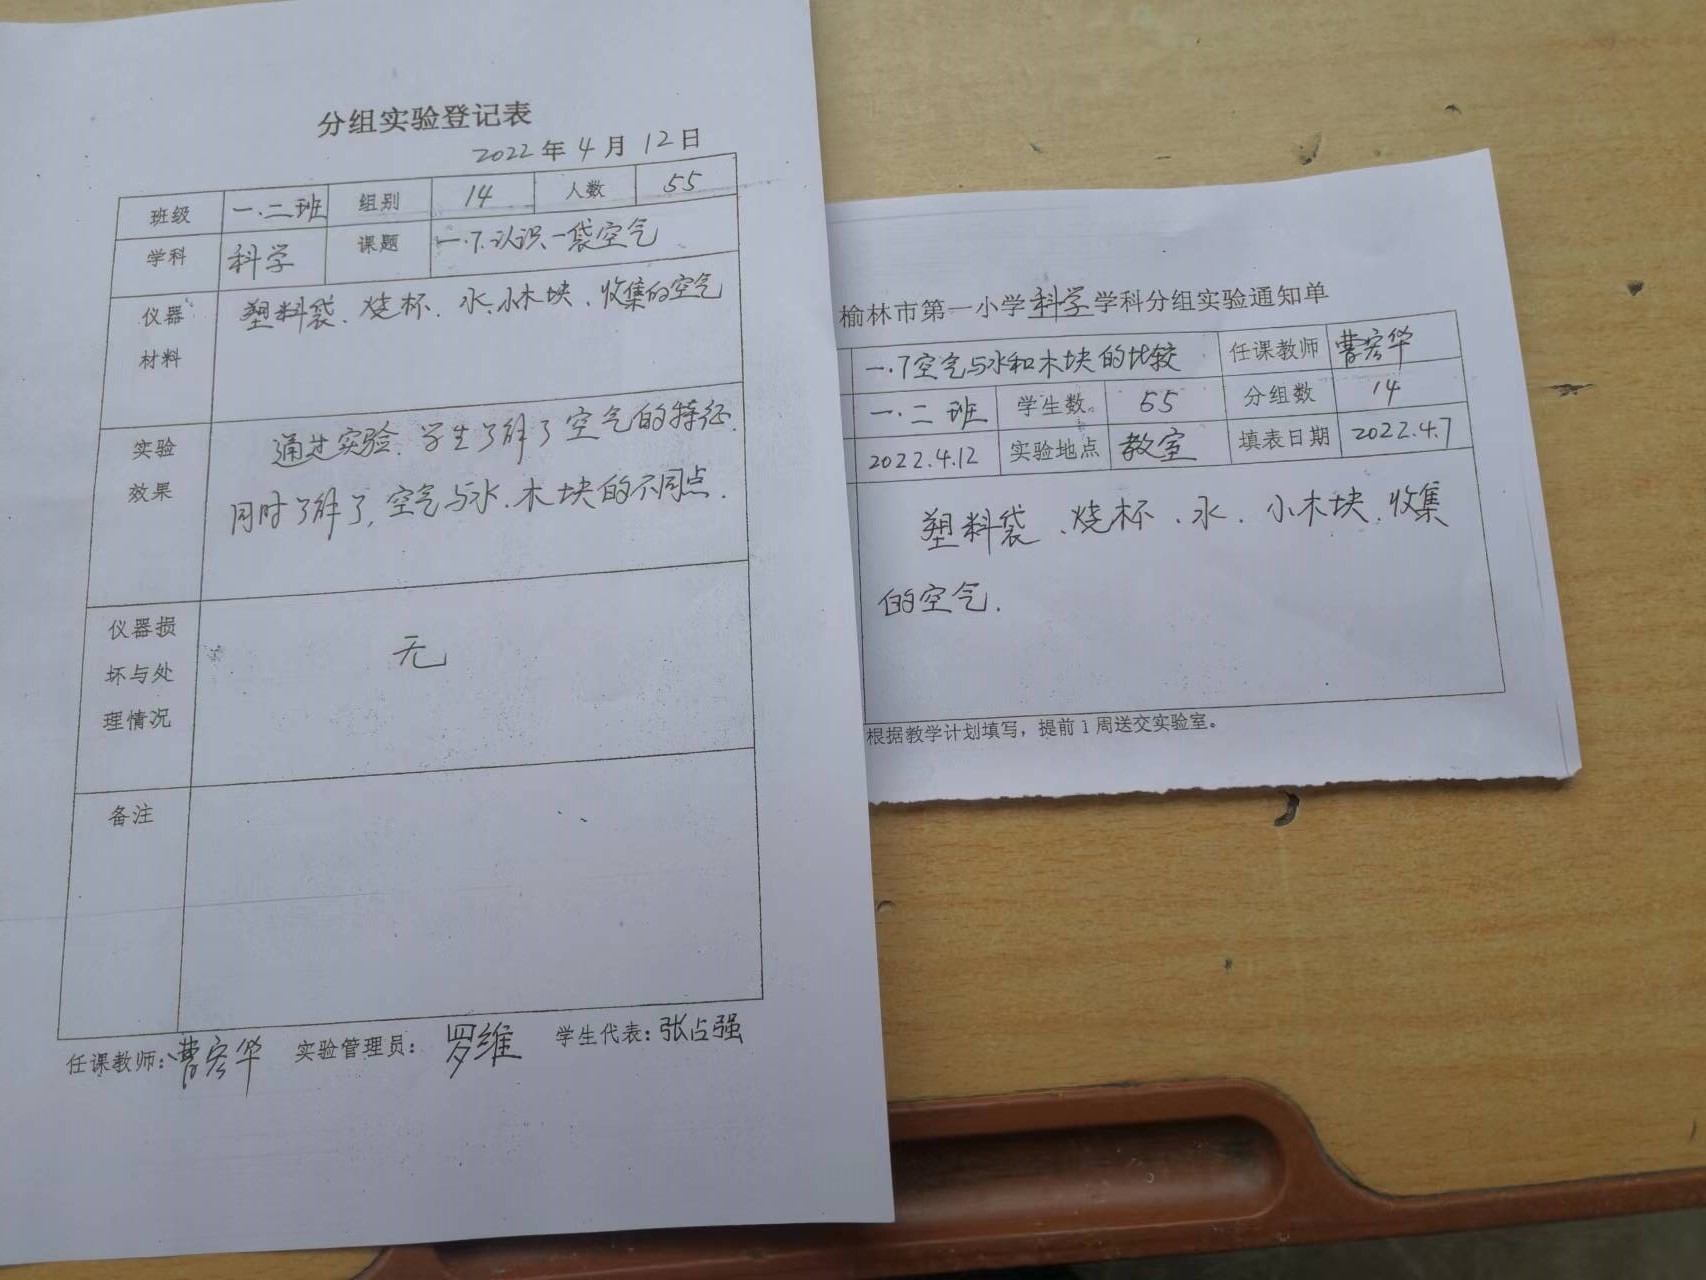 分组实验登记表
2022年4月12日
班级 一.二班 组别 14 人数 55
学科 科学 课题 一.7.认识一袋空气
仪器
材料
塑料袋、烧杯、水、小木块、收集的空气
实验
效果
通过实验、学生了解了空气的特征.
同时了解了,空气与水、木块的不同点.
仪器损
坏与处
理情况
无
备注
任课教师:曹宏华 实验管理员: 罗维 学生代表:张占强
榆林市第一小学科学学科分组实验通知单
一.7空气与水和木块的比较 任课教师 曹宏华
一.二班 学生数 55 分组数 14
2022.4.12 实验地点 教室 填表日期 2022.4.7
塑料袋、烧杯、水、小木块、收集
的空气.
根据教学计划填写，提前1周送交实验室。